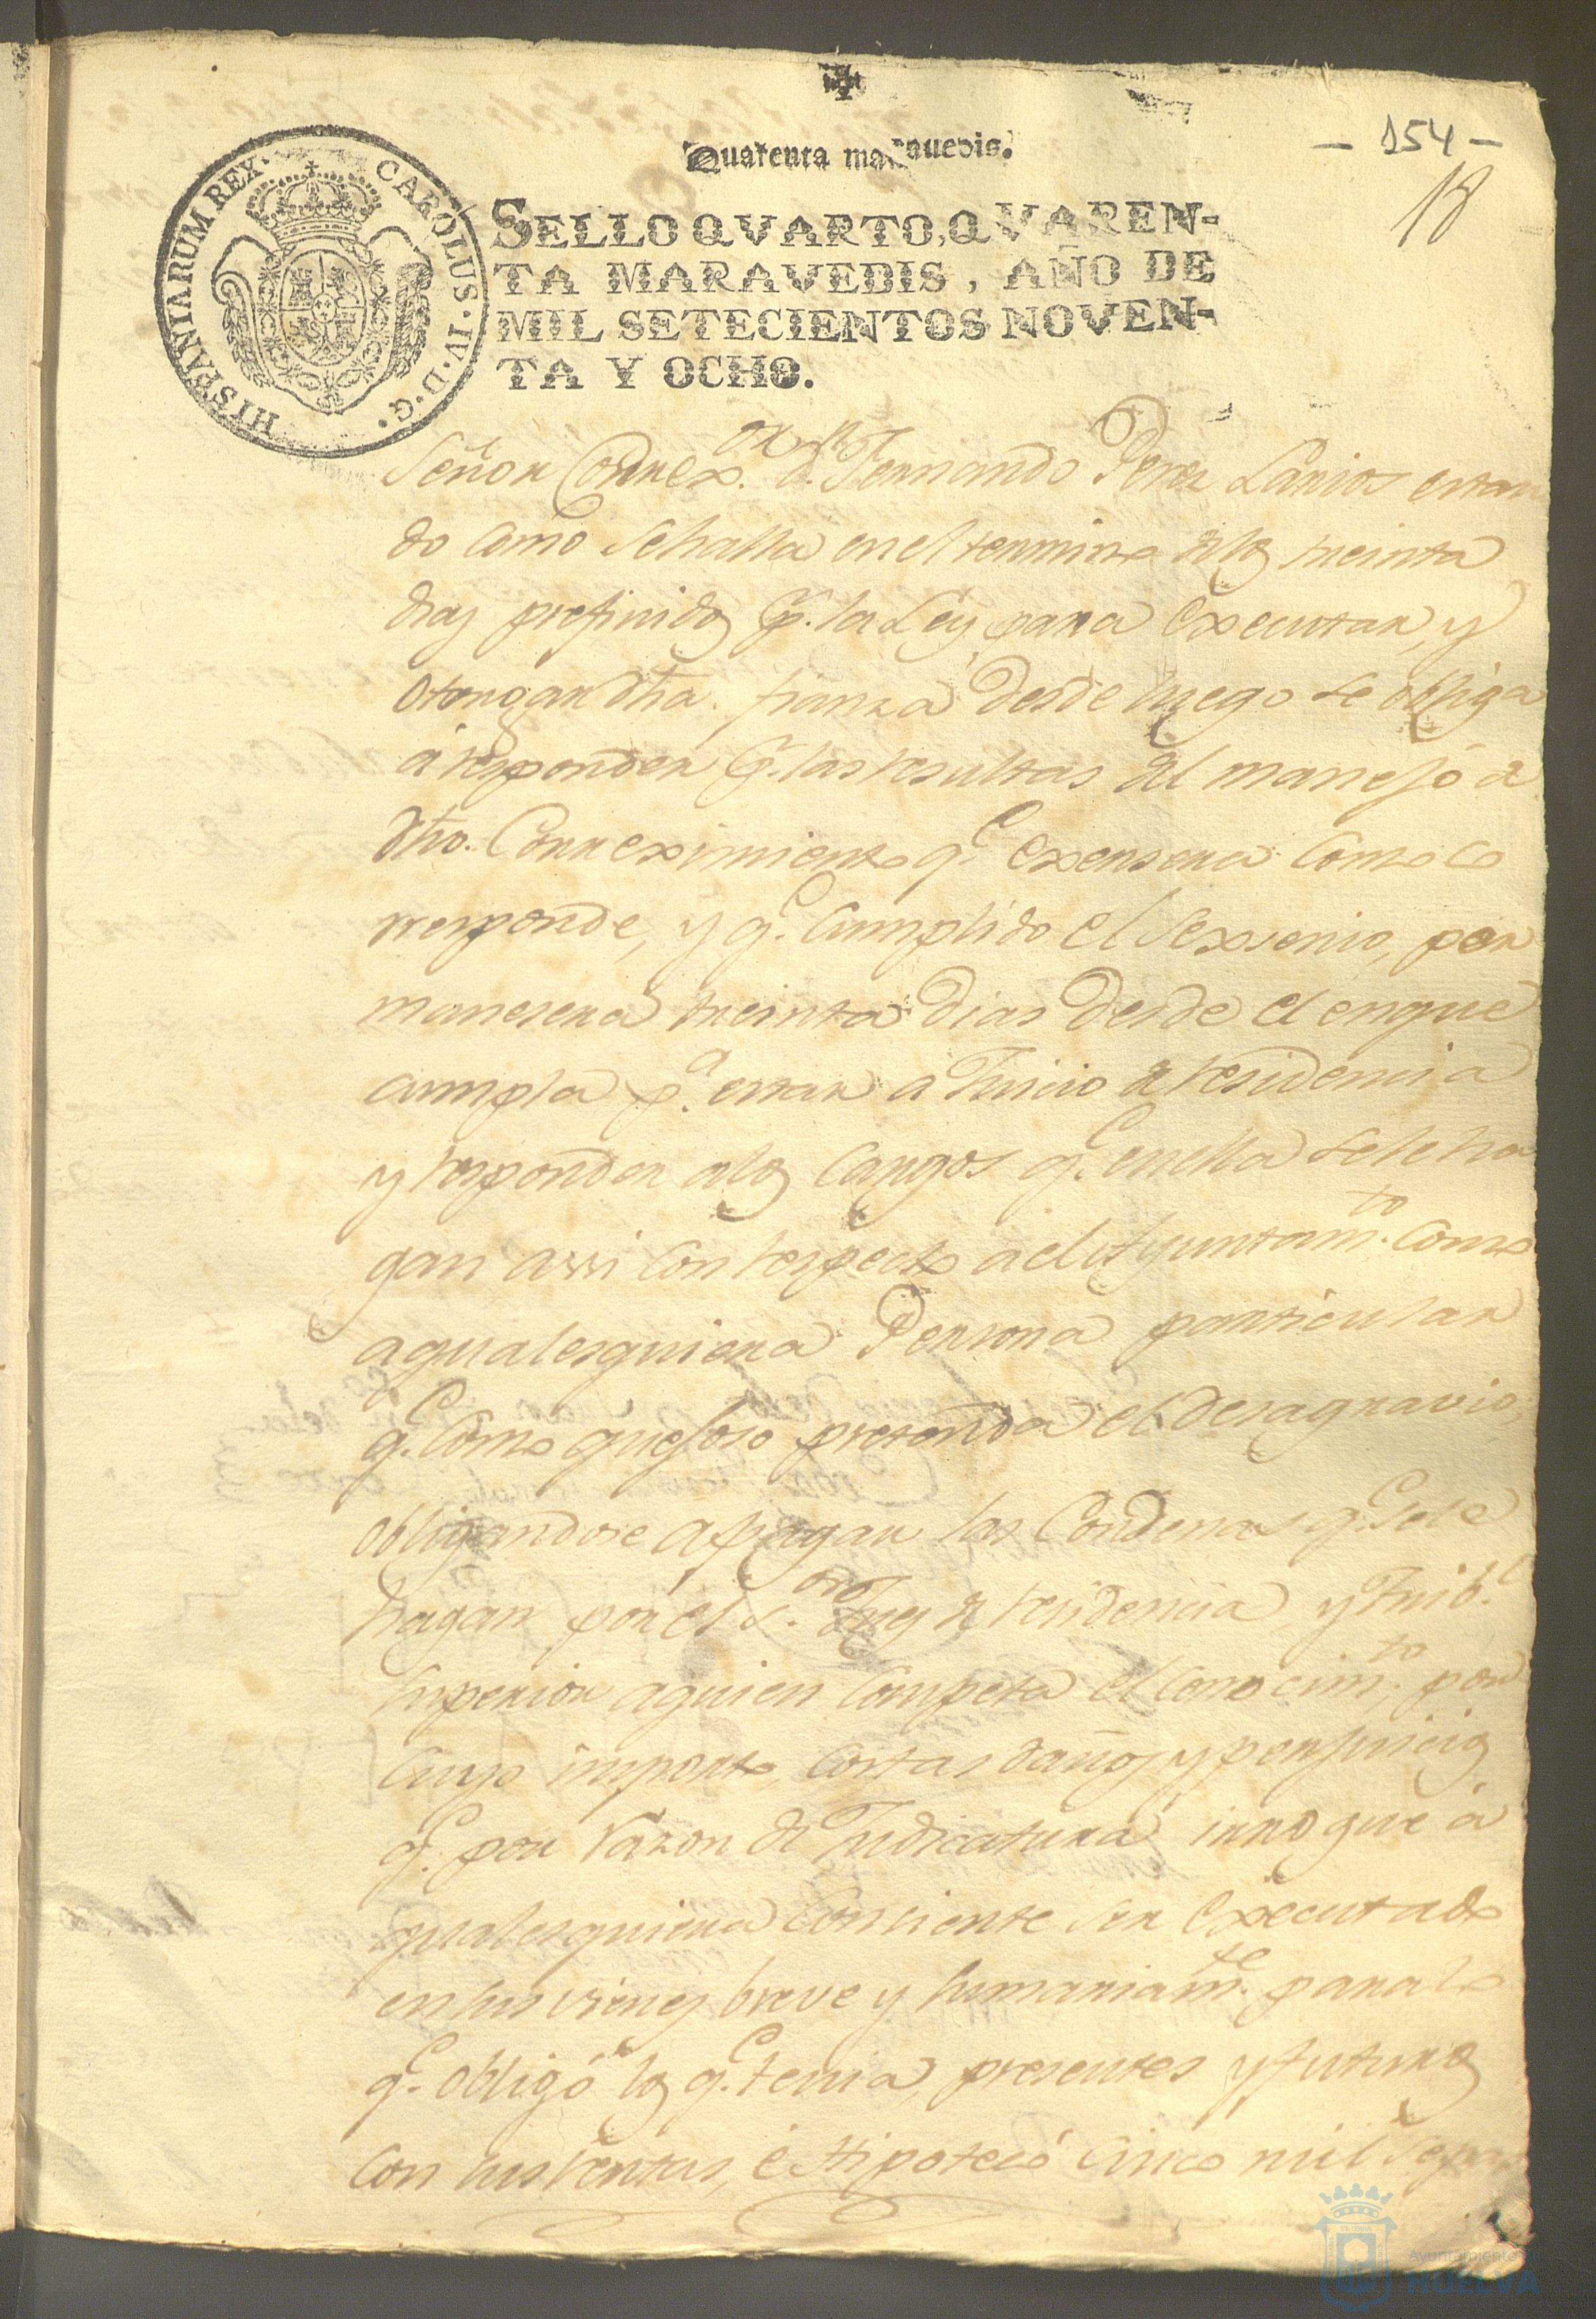 Quarenta maravedis.
- 154 -
18
HISPANIARUM REX. CAROLUS. IV. D. G.
SELLO QVARTO, QVAREN-
TA MARAVEDIS, AÑO DE
MIL SETECIENTOS NOVEN-
TA Y OCHO.
Señor Correx.or d.n Fernando Perez Larios estan
do como se halla en el termino de los treinta
dias prefinidos p.r la Ley para executar, y
otorgar dha. fianza desde luego se obliga
á responder p.r las resultas del manejo de
dho. Correximiento q.e exersera como co
rresponde, y q.e cumplido el sexsenio, per
manesera treinta dias desde el en que
cumpla p.a estar a Juicio de residencia
y responder a los cargos q.e en ella se le ha
gan assi con respecto a el Ayuntam.to como
a qualesquiera Persona particular
q.e como quejoso pretenda el desagravio,
obligandose a pagar las Condenas q.e se le
hagan por el s.or Juez de residencia, y Trib.l
Superior a quien competa el conocim.to por
cuyo importe, costas daños y perjuicios
q.e por razon de Judicatura irrogue á
qualesquiera conciente ser executado
en sus vienes breve y sumariam.te para lo
q.e obligó los q.e tenia, presentes y futuros
con sus rentas, é Hipotecó cinco mil
Ayuntamiento
HUELVA